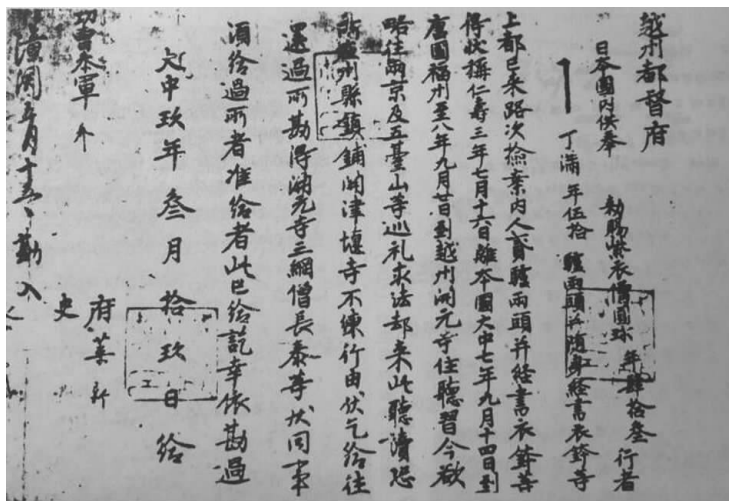 越州都督府
日本國内供奉 勅賜紫衣僧圓珍 年肆拾叁 行者
丁滿 年伍拾 驢兩頭并随身經書衣鉢等
上都已来路次檢案内人貳驢兩頭并経書衣鉢等
得狀稱仁壽三年七月十六日離本國大中七年九月十四日到
唐國福州至八年九月廿日到越州開元寺住聽習今欲
略往兩京及五臺山等巡礼求法却来此聽讀恐
所在州縣鎮鋪関津堰寺不練行由伏乞給往
還過所勘得開元寺三綱僧長泰等狀同事
須給過所者准給者此已給訖幸依勘過
大中玖年叁月拾玖日給
府葉新
史
功曹參軍
潼関五月十五日勘入